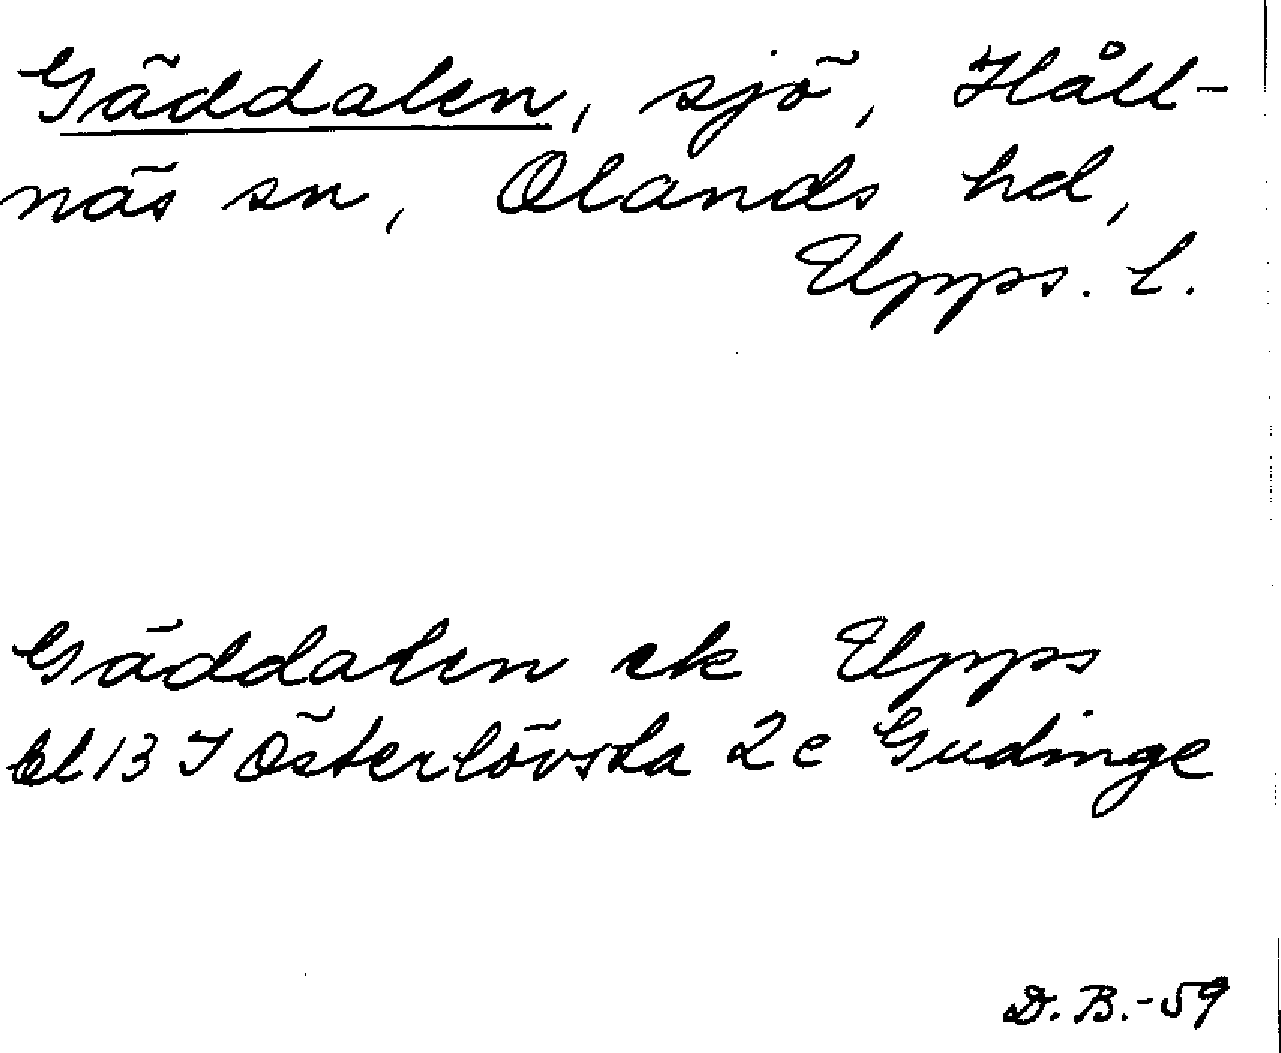 Gäddalen, sjö, Håll-
näs sn, Olands hd,
Upps. l.
Gäddalen ek Upps
bl 13 I Österlövsta 2c Gudinge
D.B.-59